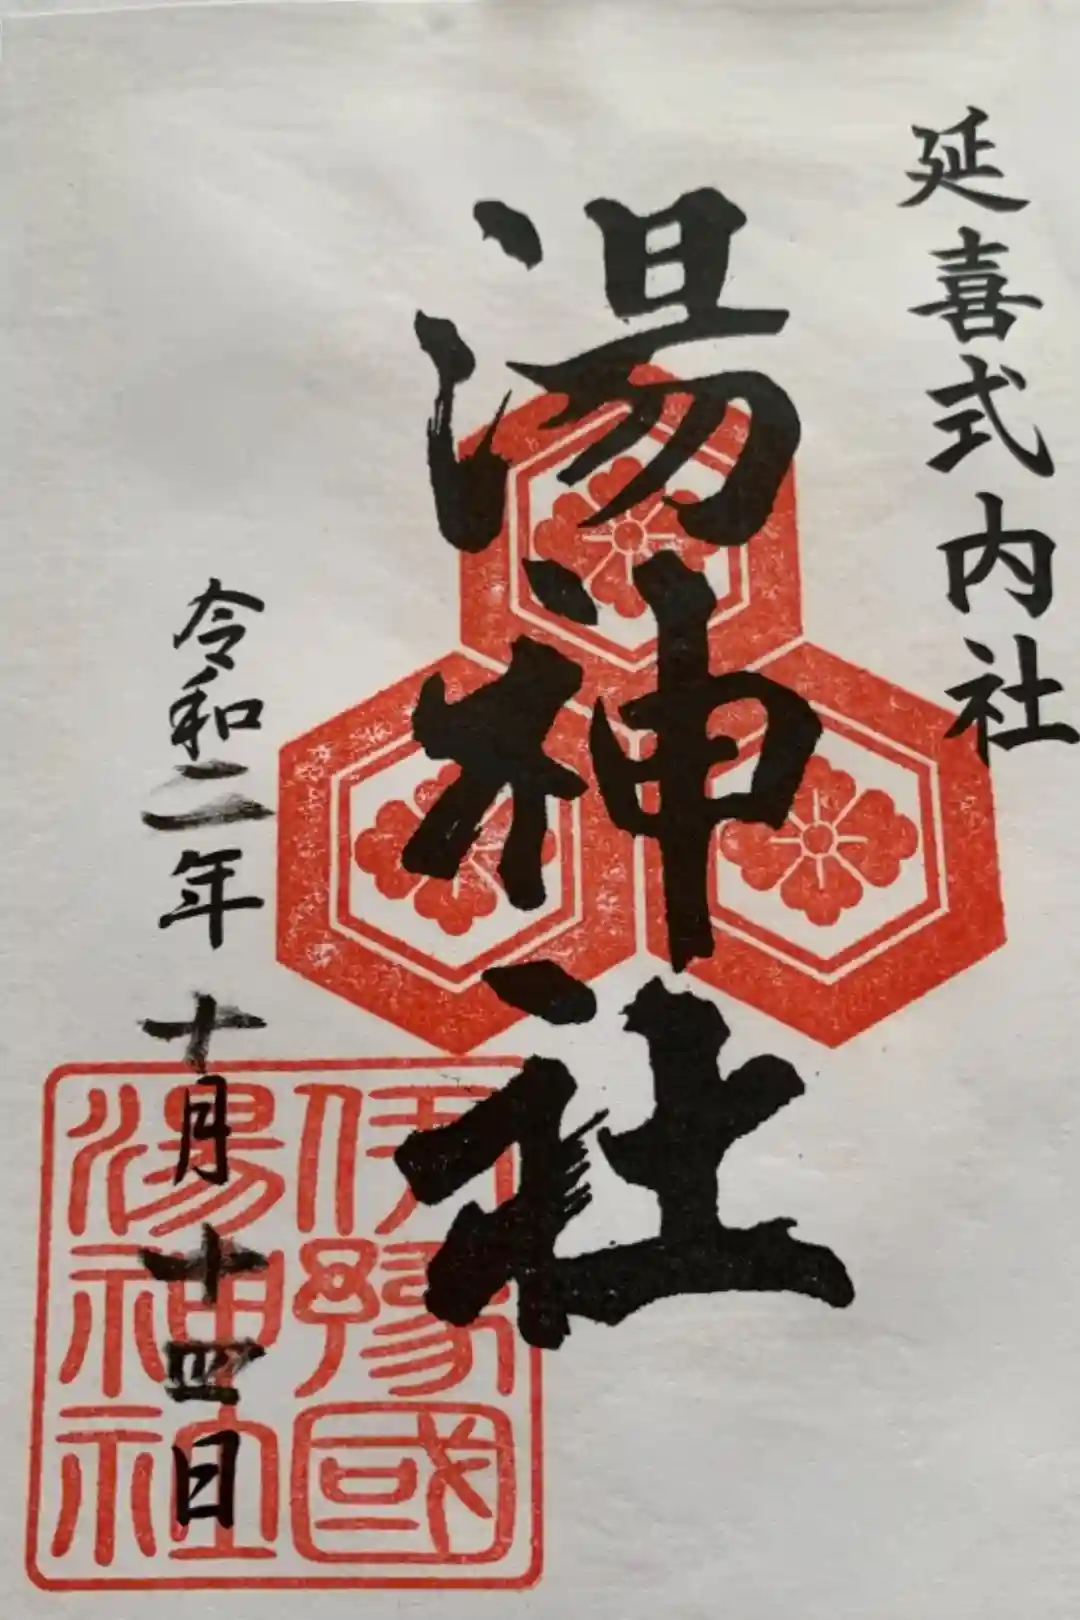 延喜式内社
湯神社
令和二年 十月 十四日
伊豫國
湯神社